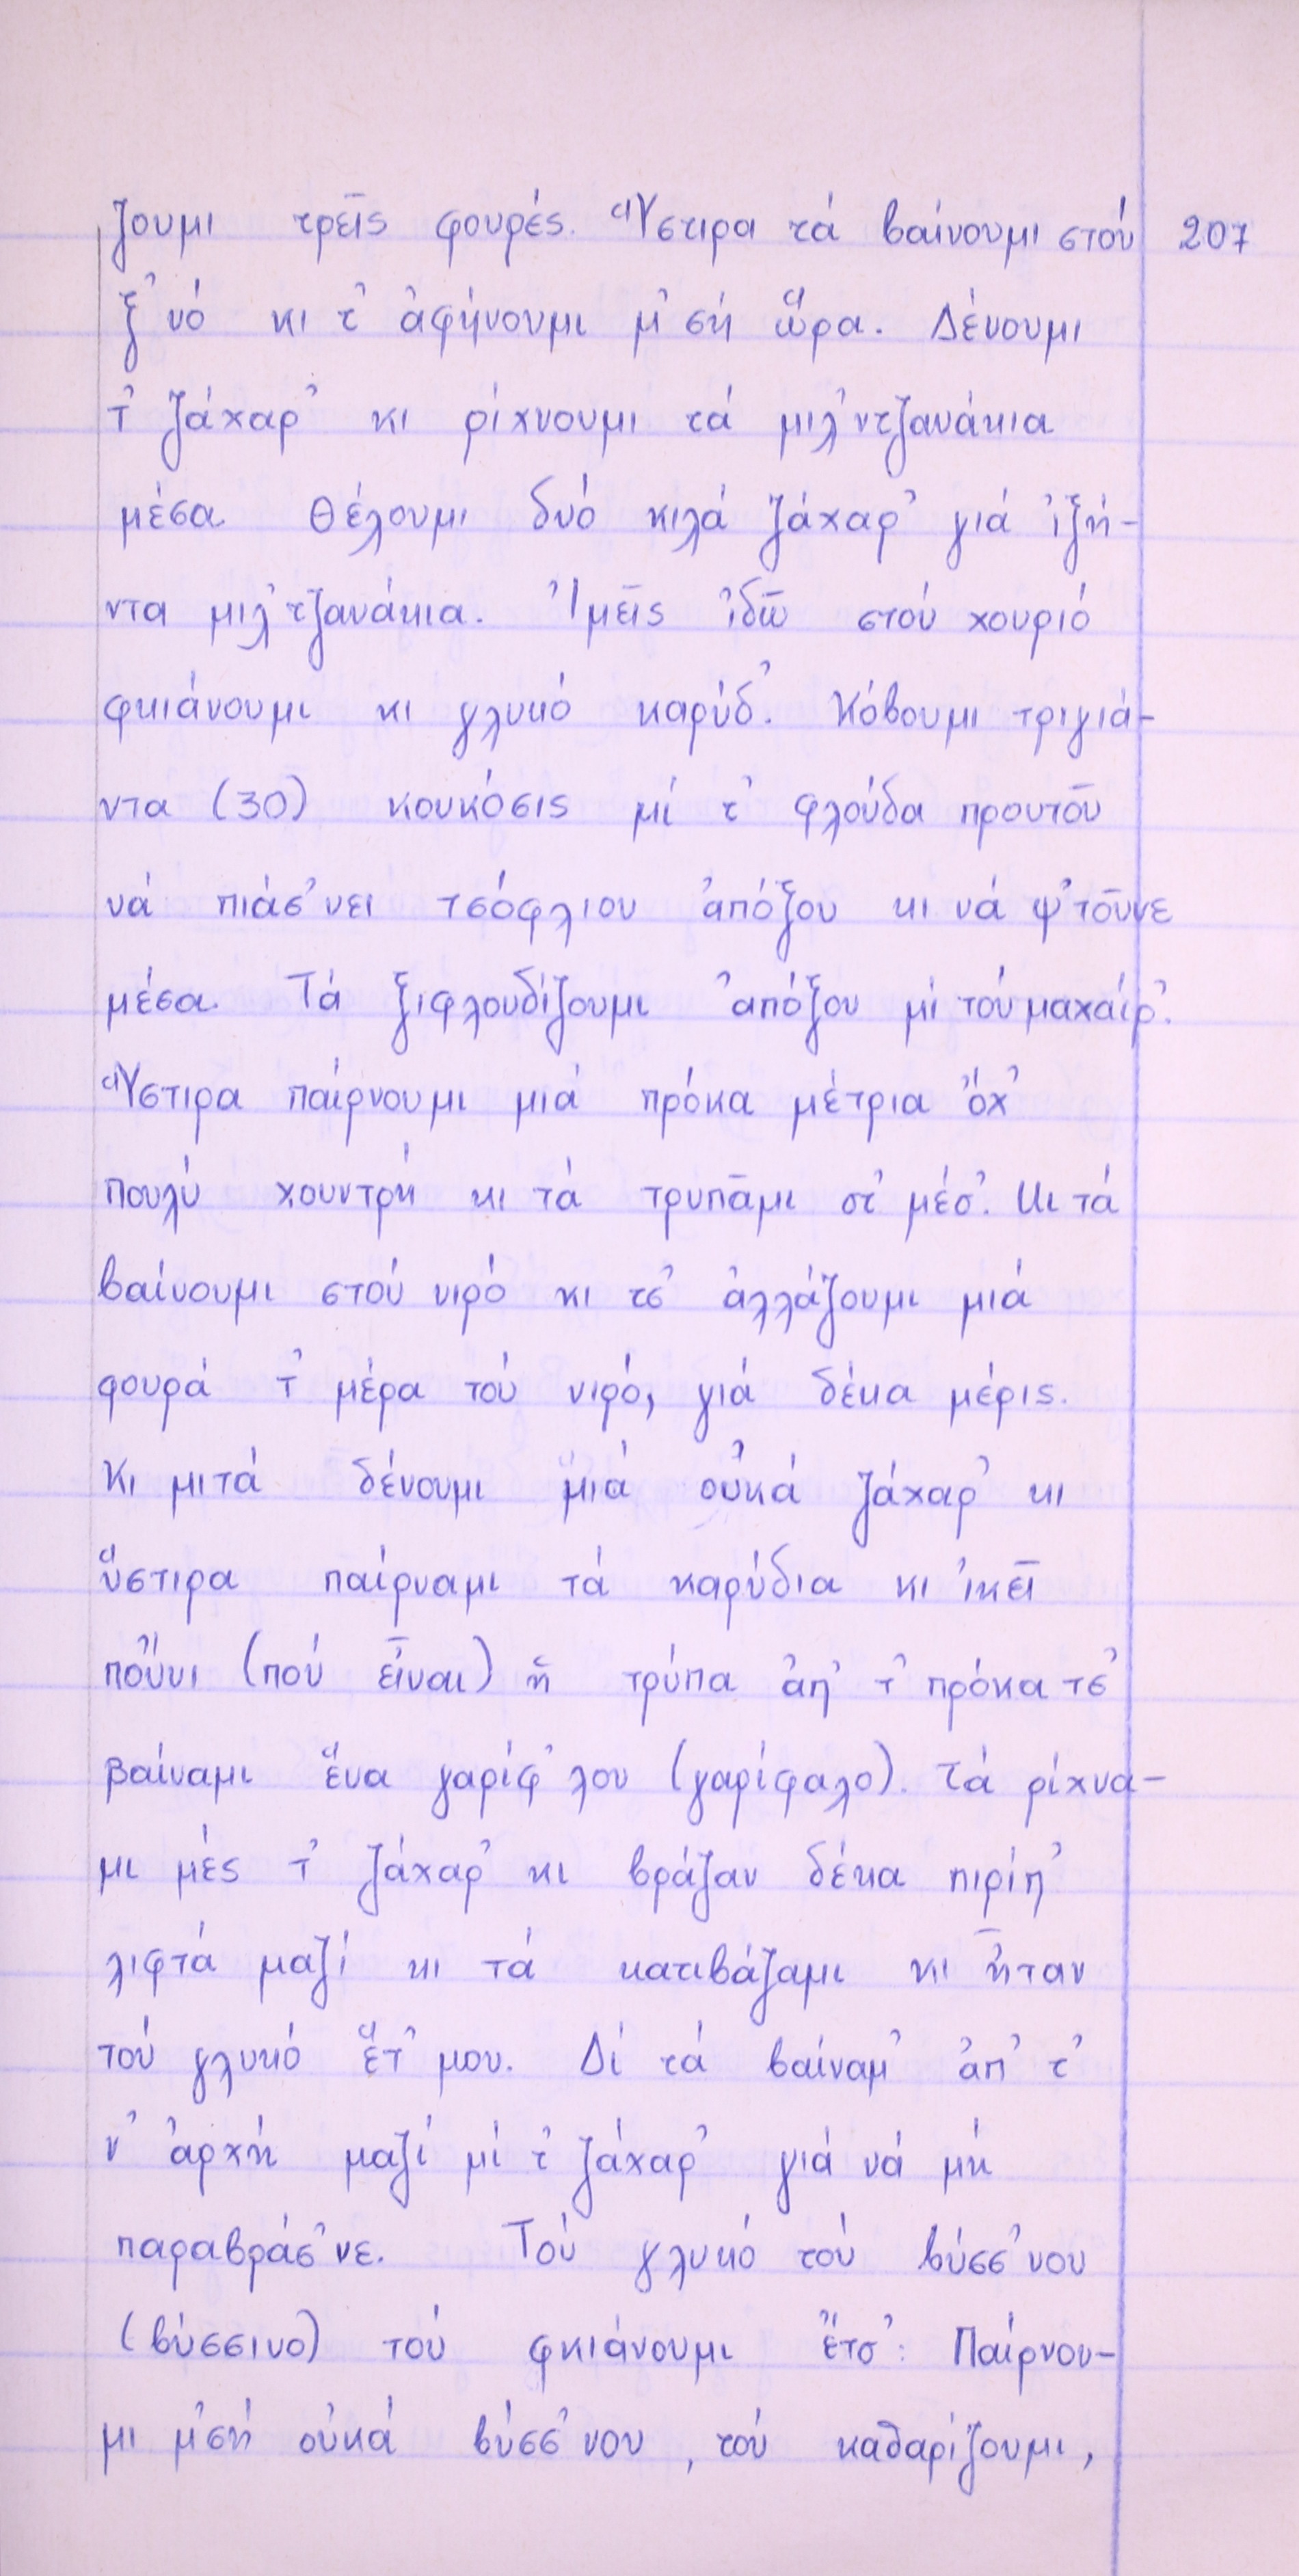 ζουμι τρεῖς φουρές. Ὕστιρα τά βαίνουμι στού 207
ξ᾿νό κι τ᾿ ἀφήνουμι μ᾿σή ὥρα. Δένουμι
τ᾿ ζάχαρ᾿ κι ρίχνουμι τά μιλ᾿ντζανάκια
μέσα. Θέλουμι δυό κιλά ζάχαρ᾿ γιά ἰξή-
ντα μιλ᾿τζανάκια. Ἰμεῖς ἰδῶ στού χουριό
φκιάνουμι κι γλυκό καρύδ᾿. Κόβουμι τριγιά-
ντα (30) κουκόσις μί τ᾿ φλούδα προυτοῦ
νά πιάσ᾿νει τσόφλιου ἀπόξου κι νά ψ᾿τοῦνε
μέσα. Τά ξιφλουδίζουμι ἀπόξου μί τού μαχαίρ᾿.
Ὕστιρα παίρνουμι μιά πρόκα μέτρια ὄχ᾿
πουλύ χουντρή κι τά τρυπᾶμι στ᾿ μέσ᾿. Κι τά
βαίνουμι στού νιρό κι τσ᾿ ἀλλάζουμι μιά
φουρά τ᾿ μέρα τού νιρό, γιά δέκα μέρις.
Κι μιτά δένουμι μιά οὐκά ζάχαρ᾿ κι
ὕστιρα παίρναμι τά καρύδια κι ἰκεῖ
ποὔνι (πού εἶναι) ἡ τρύπα ἀπ᾿ τ᾿ πρόκα τσ᾿
βαίναμι ἕνα γαρίφ᾿λου (γαρίφαλο). Τά ρίχνα-
μι μές τ᾿ ζάχαρ᾿ κι βράζαν δέκα πιρίπ᾿
λιφτά μαζί κι τά κατιβάζαμι κι ἦταν
τού γλυκό ἕτ᾿μου. Δί τά βαίναμ᾿ ἀπ᾿ τ᾿
ν᾿ ἀρχή μαζί μί τ᾿ ζάχαρ᾿ γιά νά μή
παραβράσ᾿νε. Τού γλυκό τού βύσσ᾿νου
(βύσσινο) τού φκιάνουμι ἔτσ᾿: Παίρνου-
μι μ᾿σή οὐκά βύσσ᾿νου, τού καθαρίζουμι,